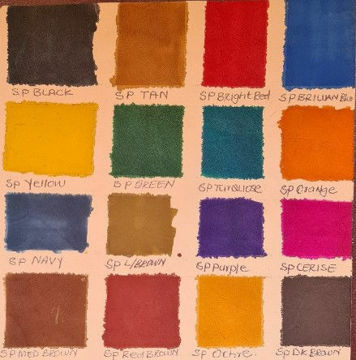 SP BLACK SP TAN SP Bright Red SP BRILLIAN Blue
SP Yellow SP GREEN SP TURQUOISE SP Orange
SP NAVY SP L/BROWN SP Purple SP CERISE
SP MED BROWN SP Red BROWN SP Ochre SP DK BROWN